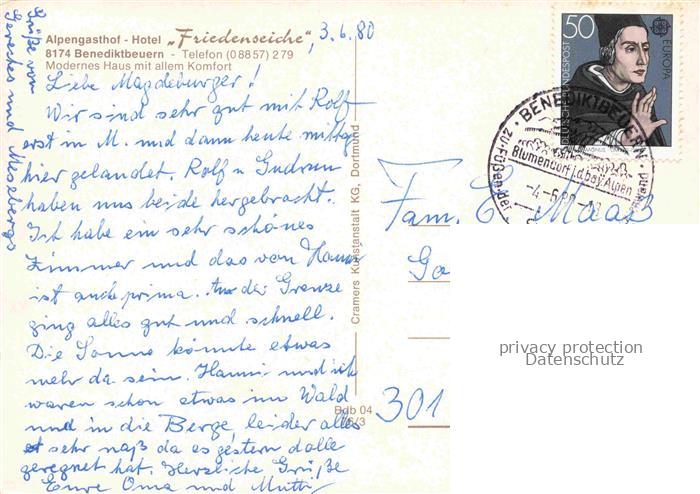 Alpengasthof - Hotel „Friedenseiche“, 3.6.80
8174 Benediktbeuern - Telefon (0 88 57) 2 79
Modernes Haus mit allem Komfort
Liebe Magdeburger!
Wir sind sehr gut mit Rolf
erst in M. und dann heute mittg
hier gelandet. Rolf u Gudrun
haben uns beide hergebracht.
Ich habe ein sehr schönes
Zimmer und das von Hanni
ist auch prima. An der Grenze
ging alles gut und schnell.
Die Sonne könnte etwas
mehr da sein. Hanni und ich
waren schon etwas im Wald
und in die Berge, leider alles
sehr naß da es gestern dolle
geregnet hat. Herzliche Grüße
Eure Oma und Mutti
Grüße von
Gereckes und Mesebergs
Cramers Kunstanstalt KG, Dortmund
Bdb 04
50
DEUTSCHE BUNDESPOST
EUROPA
BENEDIKTBEUERN
Blumendorf i.d. bay. Alpen
-4.-6.80
Fam. E Maaß
301
privacy protection
Datenschutz